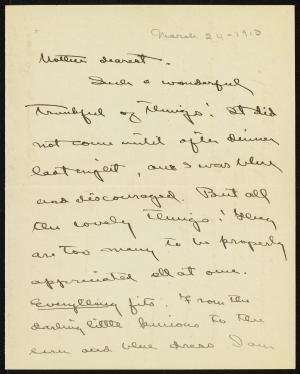 March 24-1913
Mother dearest -
Such a wonderful
trunkful of things! It did
not come until after dinner
last night, and I was blue
and discouraged. But all
the lovely things! They
are too many to be properly
appreciated all at once.
Everything fits. From the
darling little kimono to the
and blue dress I am